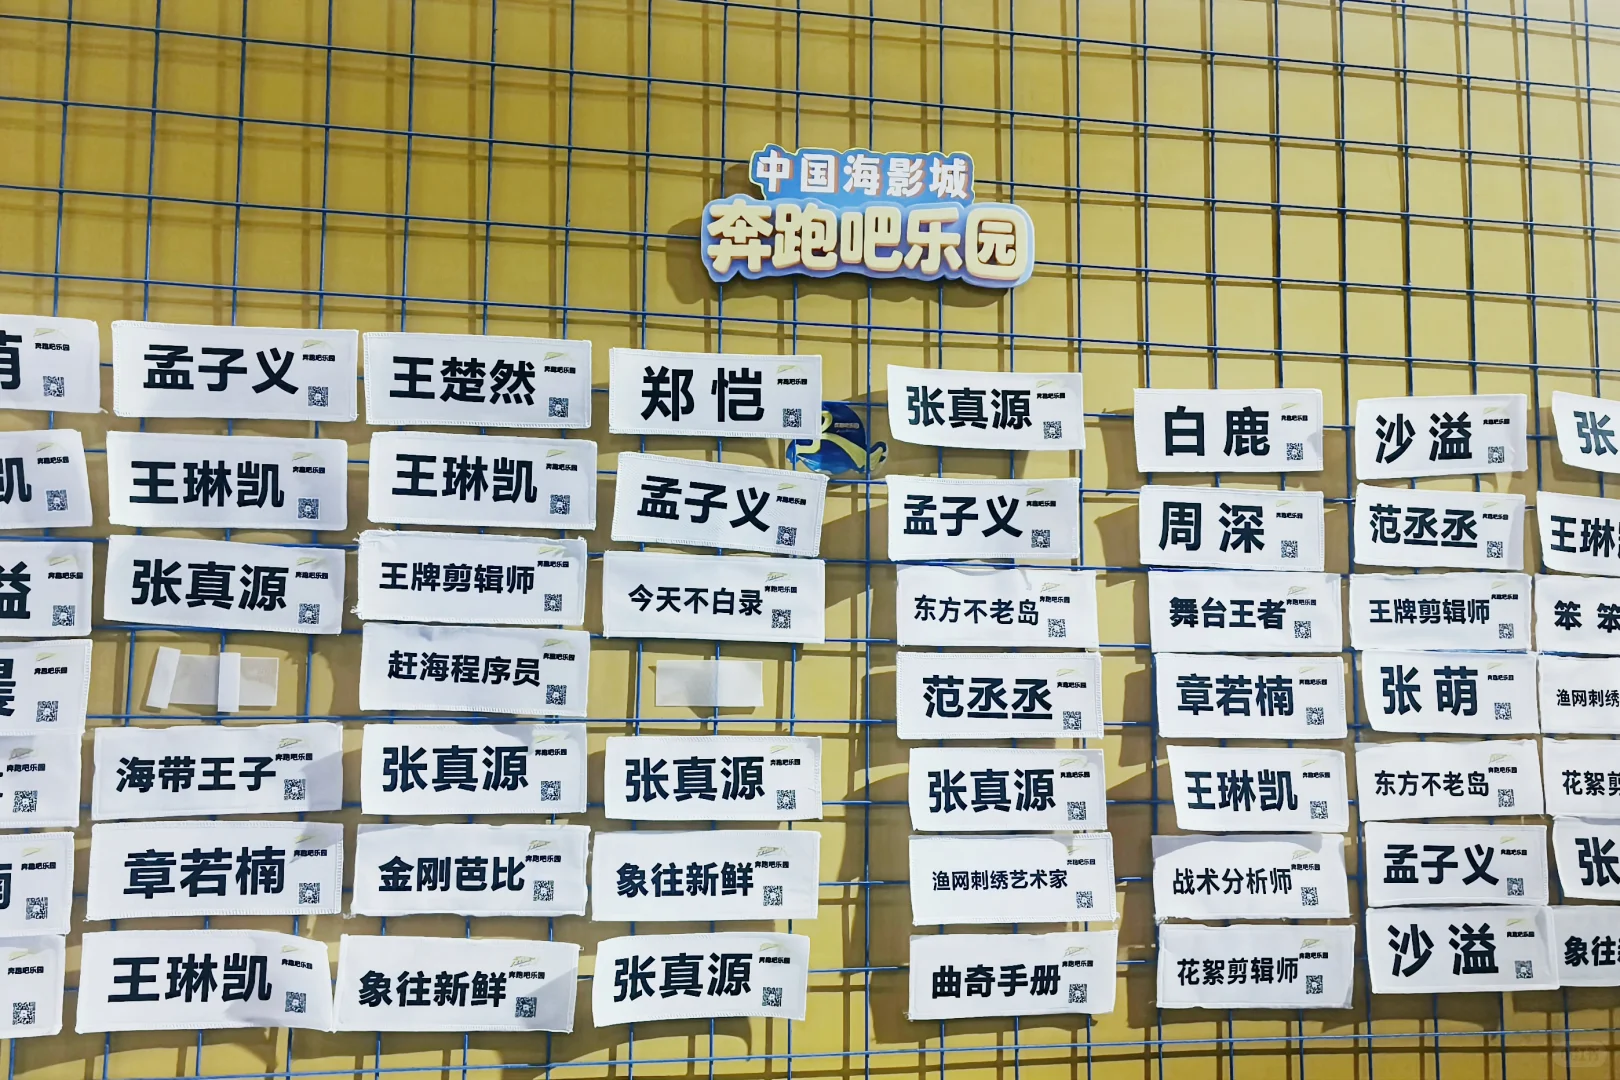 中国海影城
奔跑吧乐园
孟子义
王楚然
郑恺
张真源
白鹿
沙溢
张
凯
王琳凯
王琳凯
孟子义
孟子义
周深
范丞丞
王琳
溢
张真源
王牌剪辑师
今天不白录
东方不老岛
舞台王者
王牌剪辑师
笨笨
赶海程序员
范丞丞
章若楠
张萌
渔网刺绣
海带王子
张真源
张真源
张真源
王琳凯
东方不老岛
花絮剪
章若楠
金刚芭比
象往新鲜
渔网刺绣艺术家
战术分析师
孟子义
张
王琳凯
象往新鲜
张真源
曲奇手册
花絮剪辑师
沙溢
象往